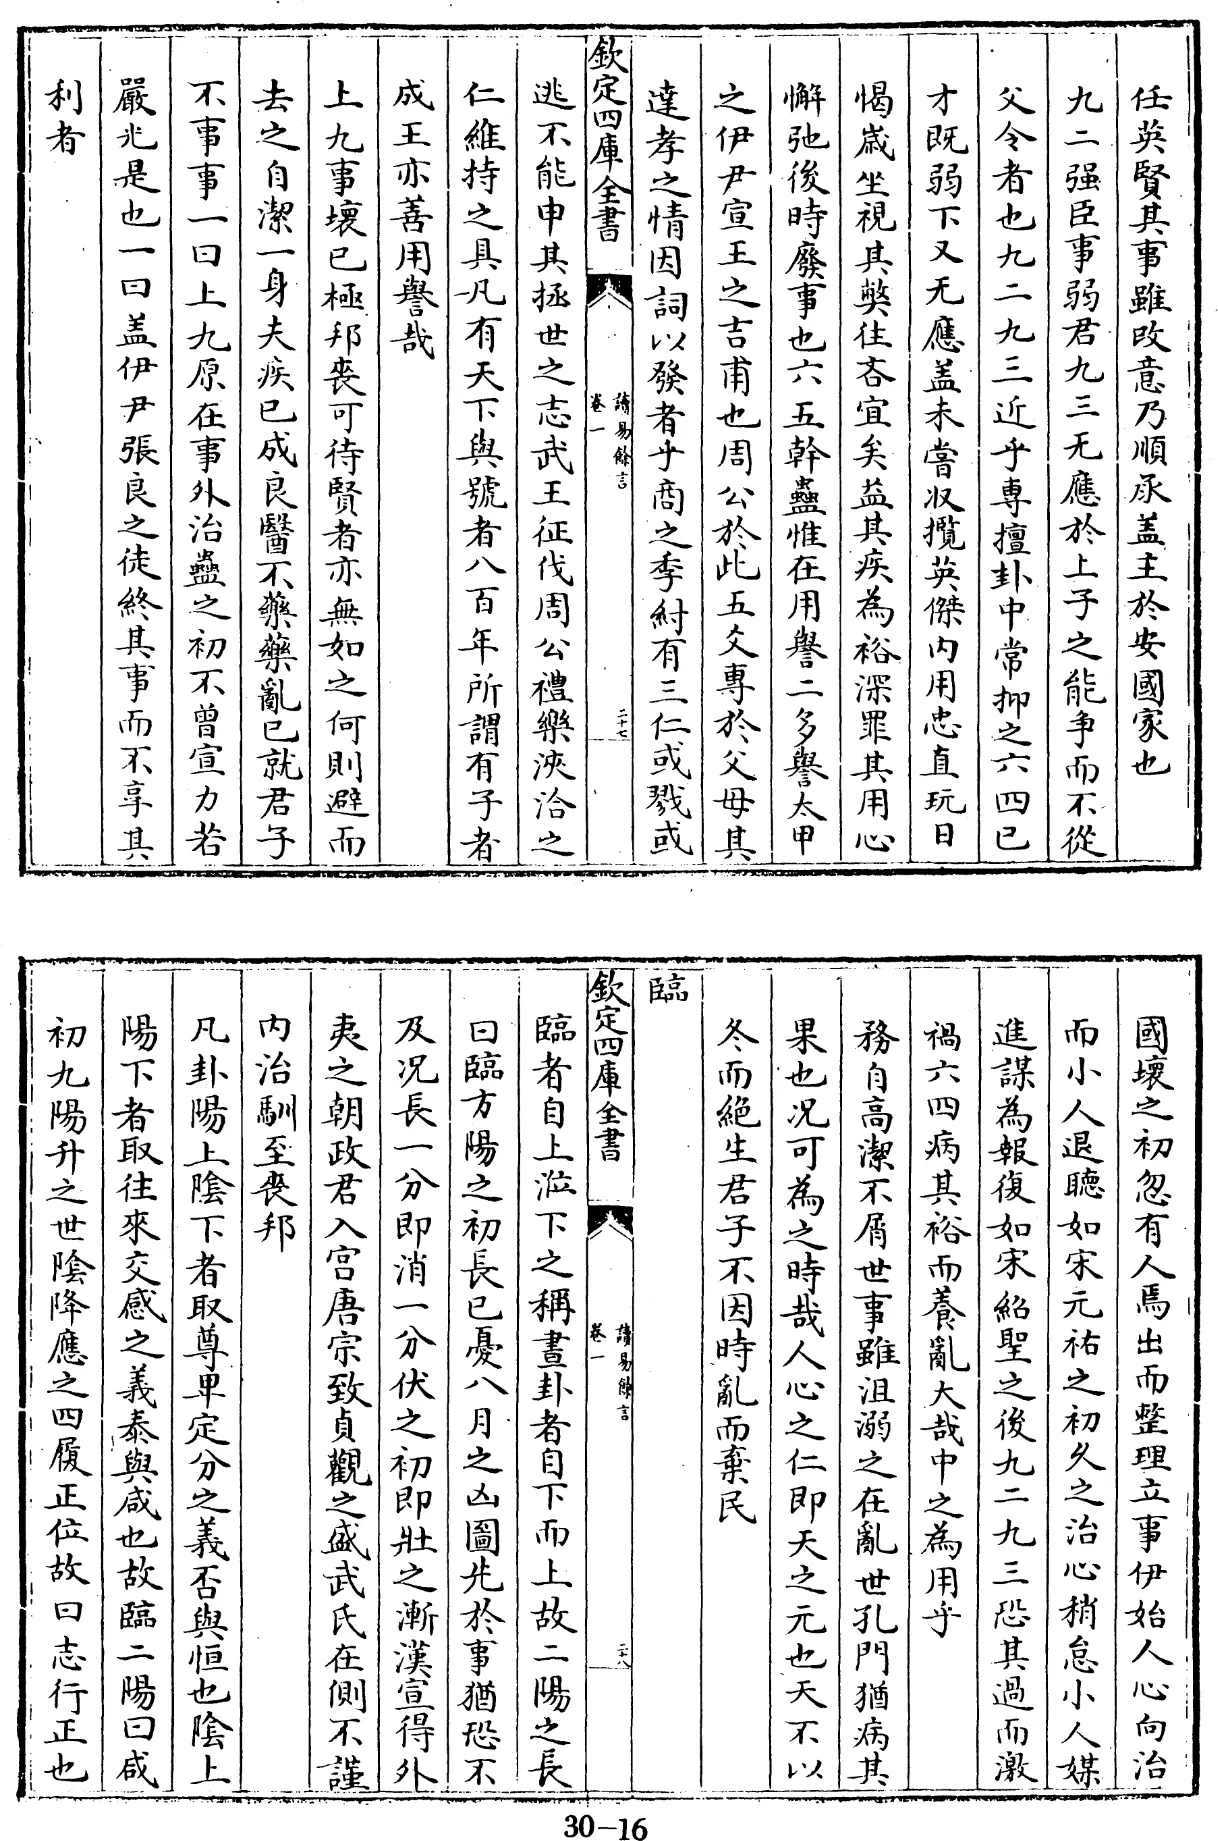 任英賢其事雖改意乃順承盖主於安國家也
九二强臣事弱君九三无應於上子之能爭而不從
父令者也九二九三近乎專擅卦中常抑之六四已
才既弱下又无應盖未嘗収攬英傑内用忠直玩日
愒歳坐視其弊往吝宜矣益其疾為裕深罪其用心
懈弛後時廢事也六五幹蠱惟在用譽二多譽太甲
之伊尹宣王之吉甫也周公於此五爻專於父母其
達孝之情因詞以發者乎商之季紂有三仁或戮或
欽定四庫全書
讀易餘言
卷一
二十七
逃不能申其拯世之志武王征伐周公禮樂浹洽之
仁維持之具凡有天下與號者八百年所謂有子者
成王亦善用譽哉
上九事壞已極邦喪可待賢者亦無如之何則避而
去之自潔一身夫疾已成良醫不藥藥亂已就君子
不事事一曰上九原在事外治蠱之初不曽宣力若
嚴光是也一曰盖伊尹張良之徒終其事而不享其
利者
國壞之初忽有人焉出而整理立事伊始人心向治
而小人退聽如宋元祐之初久之治心稍怠小人媒
進謀為報復如宋紹聖之後九二九三恐其過而激
禍六四病其裕而養亂大哉中之為用乎
務自高潔不屑世事雖沮溺之在亂世孔門猶病其
果也况可為之時哉人心之仁即天之元也天不以
冬而絶生君子不因時亂而棄民
臨
欽定四庫全書
讀易餘言
卷一
二十八
臨者自上涖下之稱畫卦者自下而上故二陽之長
曰臨方陽之初長已憂八月之凶圖先於事猶恐不
及况長一分即消一分伏之初即壯之漸漢宣得外
夷之朝政君入宫唐宗致貞觀之盛武氏在側不謹
内治馴至喪邦
凡卦陽上陰下者取尊卑定分之義否與恒也陰上
陽下者取往來交感之義泰與咸也故臨二陽曰咸
初九陽升之世陰降應之四履正位故曰志行正也
30-16